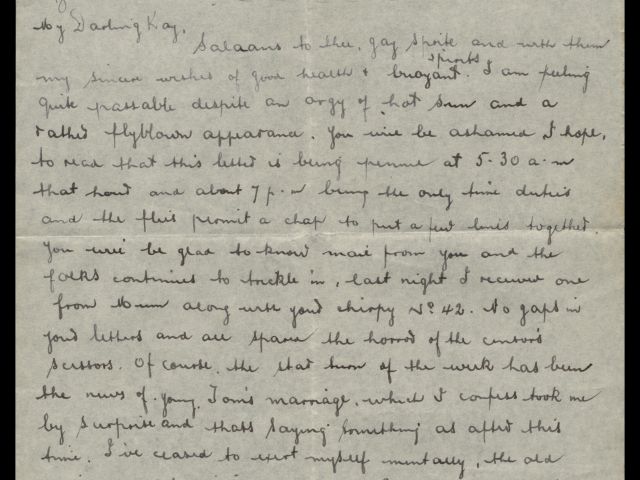 My Darling Kay,
Salaams to thee, gay sprite and with them
my sincere wishes of good health & buoyant spirits. I am feeling
quite passable despite an orgy of hot sun and a
rather flyblown appearance. You will be ashamed I hope,
to read that this letter is being penned at 5.30 a.m
that hour and about 7 p.m being the only time duties
and the flies permit a chap to put a few lines together.
You will be glad to know mail from you and the
folks continues to trickle in, last night I received one
from Mum along with your chirpy No 42. No gaps in
your letters and all spared the horror of the censor's
scissors. Of course, the star turn of the week has been
the news of young Tom's marriage, which I confess took me
by surprise and thats saying something as after this
time. I've ceased to exert myself mentally, the old